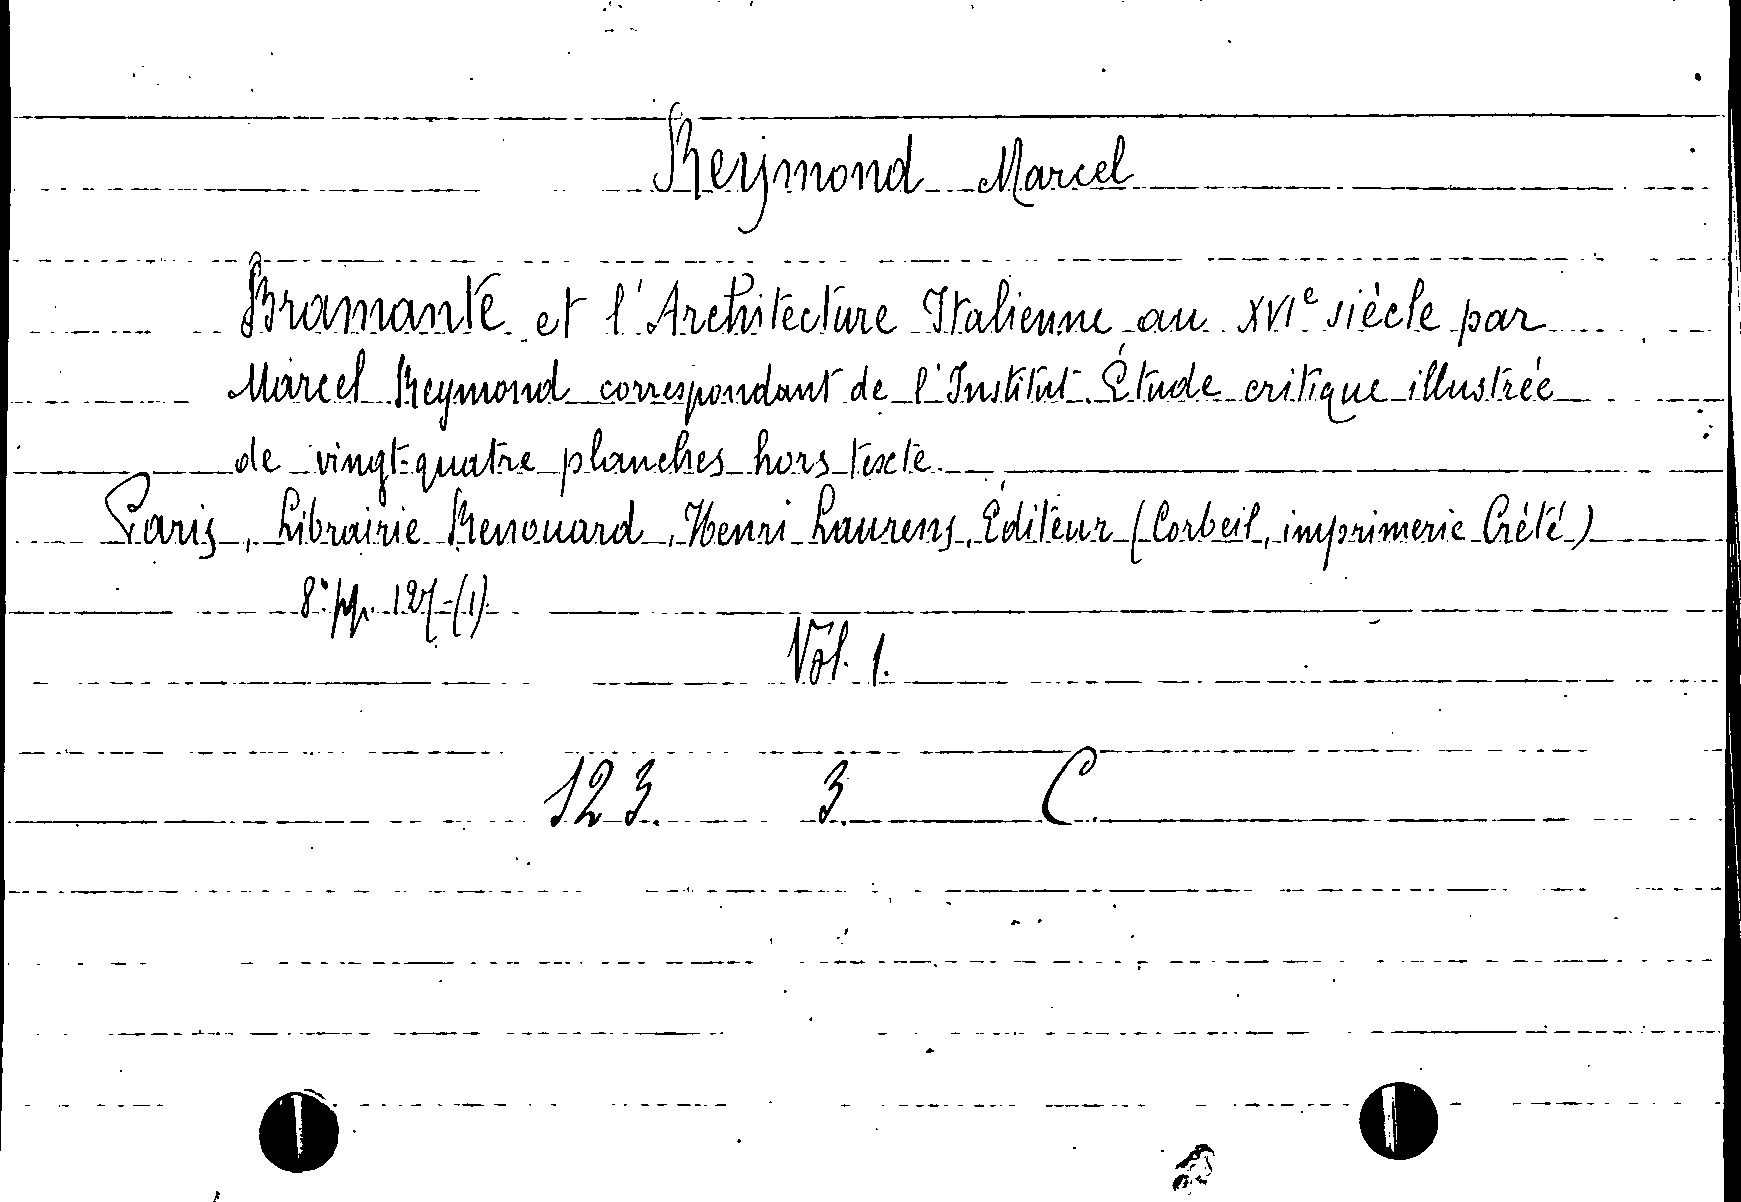 Reymond Marcel
Bramante et l'Architecture Italienne au XVIe siècle par
Marcel Reymond correspondant de l'Institut. Étude critique illustrée
de vingt-quatre planches hors texte.
Paris, Librairie Renouard, Henri Laurens, Éditeur (Corbeil, imprimerie Crété)
8° pp. 127-(1).
Vol. 1.
123. 3. C.